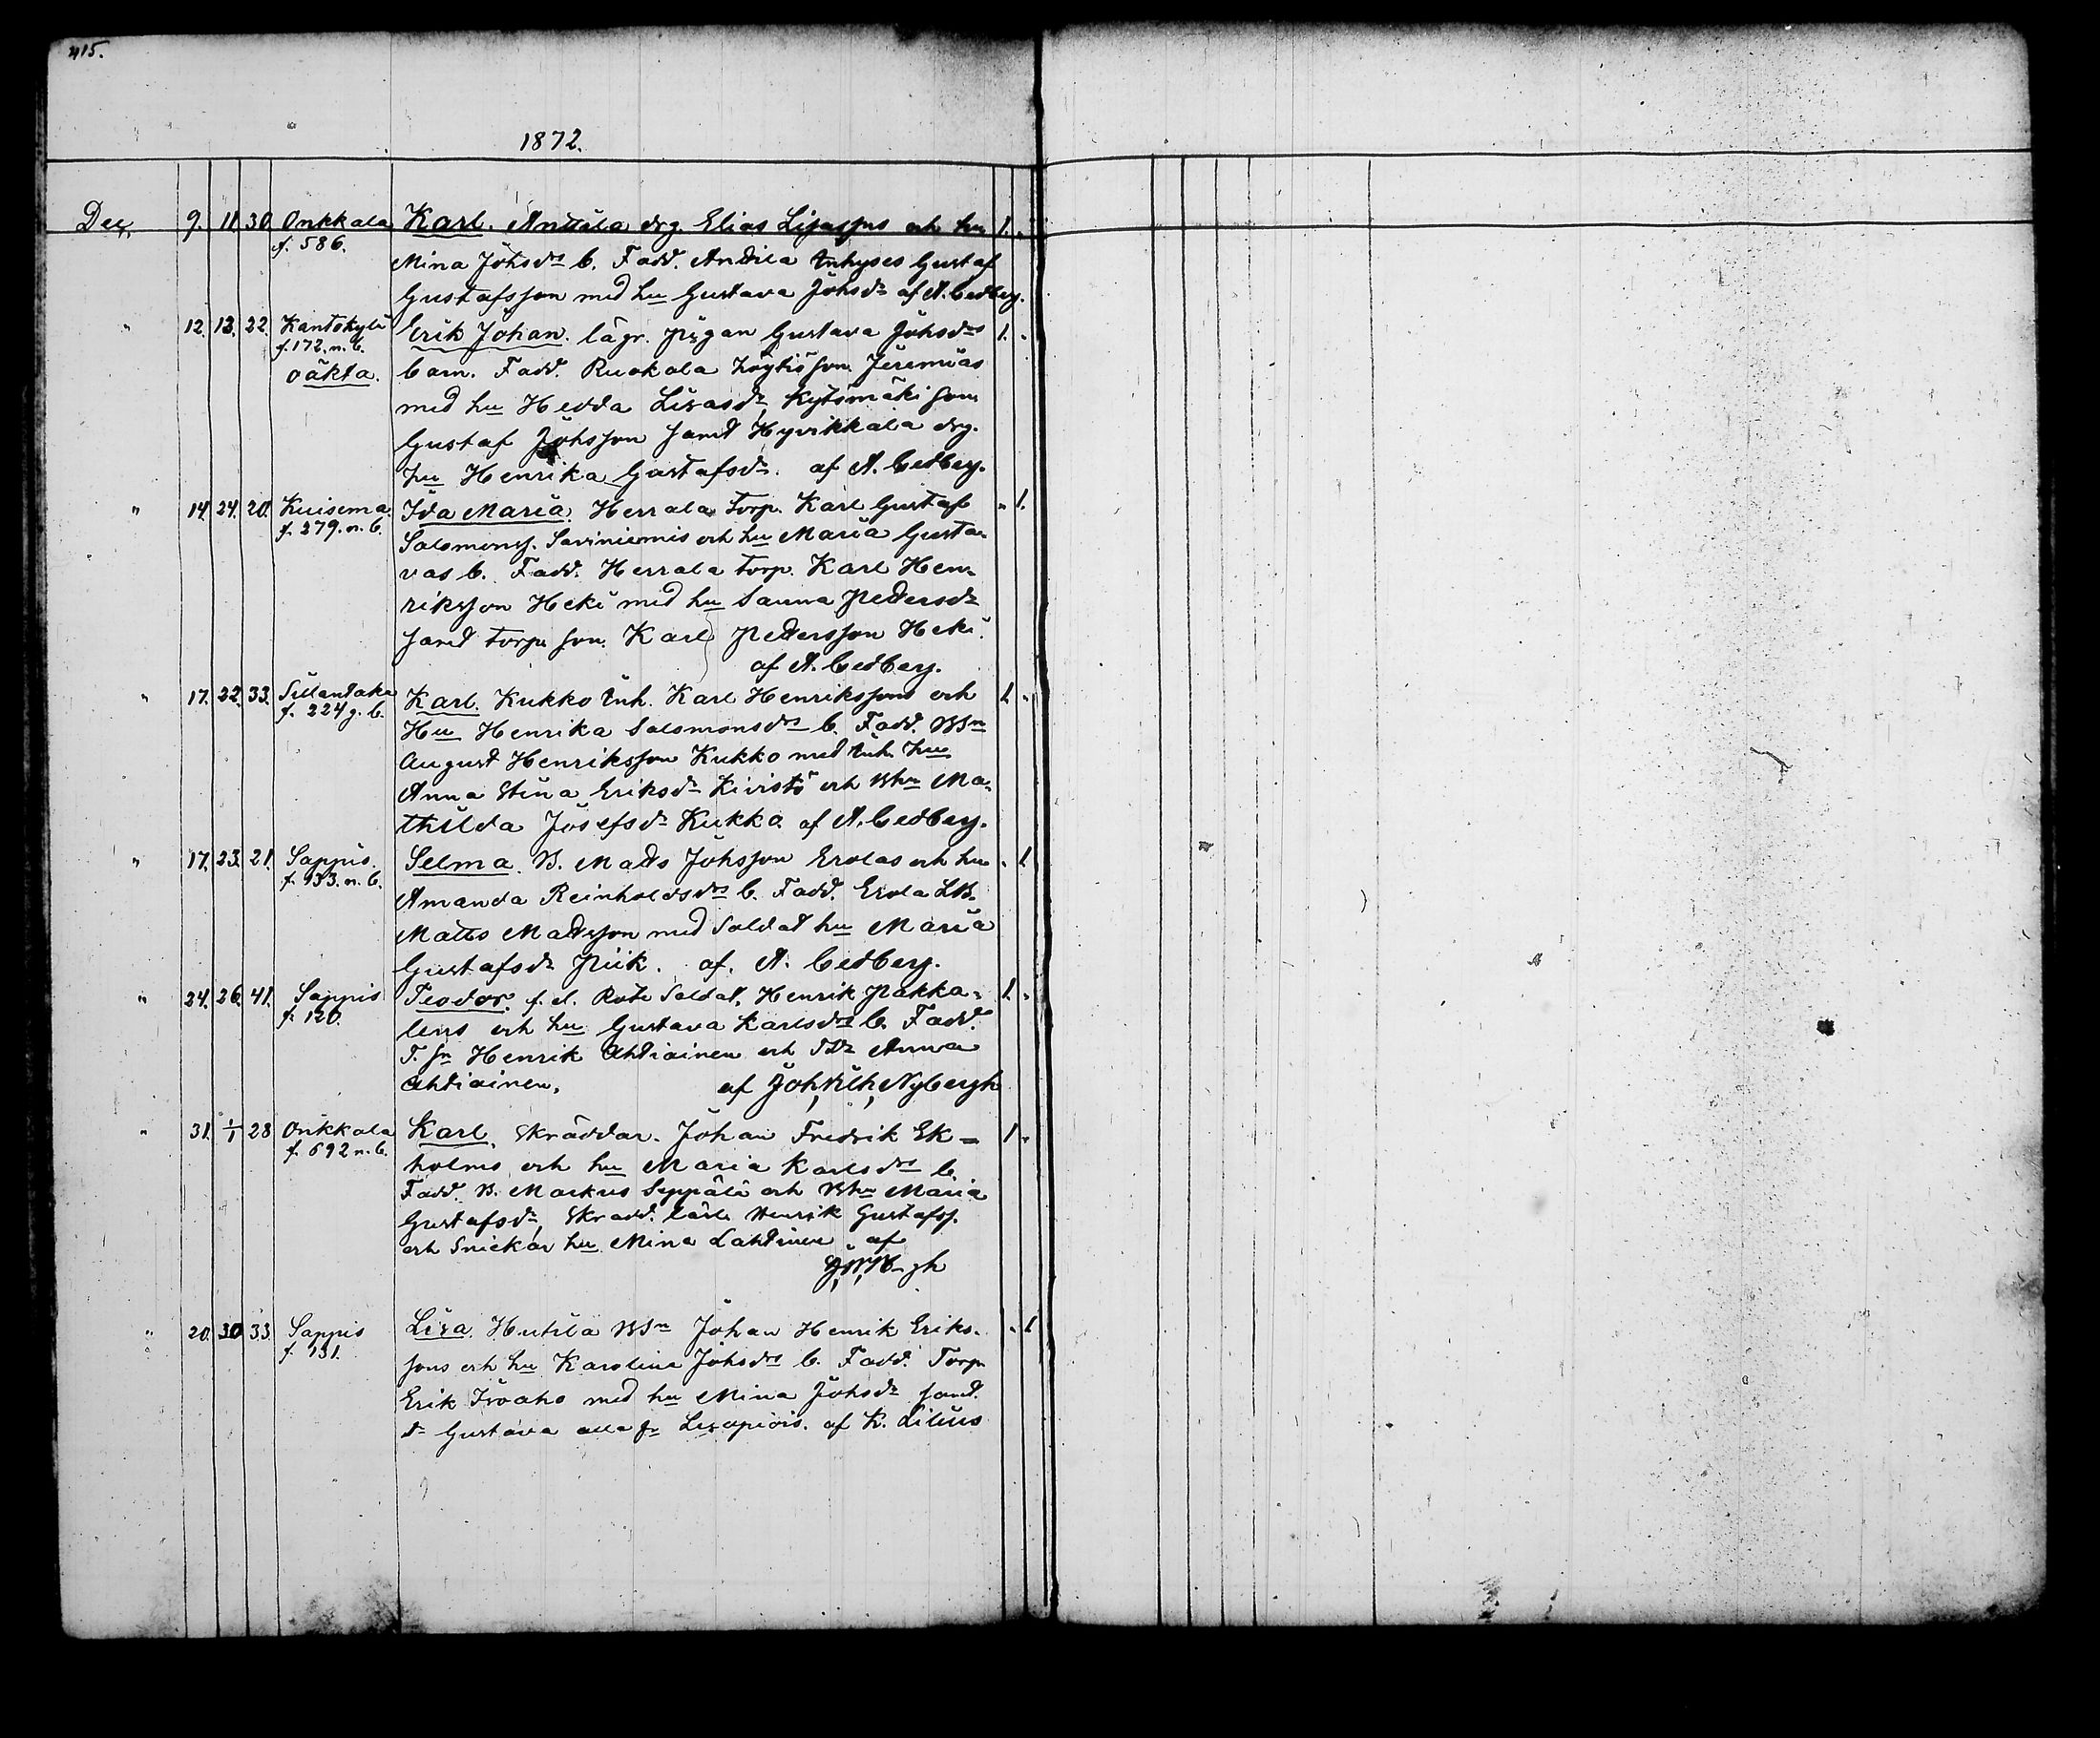 415.
1872.
Dec. 9. 11 30 Onkkala Karl. Anttila drg. Elias Lisassns och hu 1. "
f. 586. Mina Johsdrs b. Fadd. Andila Inhyses Gustaf
Gustafsson med hu Gustava Johsdr af A. Cedberg.
" 12. 13. 22. Kantokylä Erik Johan. lägr. pigan Gustava Johsdrs 1. "
f. 172. n. b. barn. Fadd. Ruokola son Jeremias
oäkta. med hu Hedda Lisasdr, Kytömäki son
Gustaf Johsson samt Hyvikkala drg.
hu Henrika Gustafsdr. af A. Cedberg.
" 14. 24. 20. Kuisema Ida Maria. Herrala Torp. Karl Gustaf " 1.
f. 279. n. b. Salomonss. Saviniemis och hu Maria Gusta-
vas b. Fadd. Herrala Torp. Karl Hen-
riksson Heki med hu Sanna Petersdr
samt torp. son. Karl Petersson Heki.
af A. Cedberg.
" 17. 22. 33. Sillantaka Karl. Kukko Inh. Karl Henrikssons och 1. "
f. 224 g. b. Hu Henrika Salomonsdrs b. Fadd. BSn
August Henriksson Kukko med Inh. hu
Anna Stina Eriksdr Kivistö och Bhu Ma-
thilda Josefsdr Kukko af A. Cedberg.
" 17. 23. 21. Sappis. Selma. B. Mats Johsson Erolas och hu " 1
f. 133. n. b. Amanda Reinholdsdrs b. Fadd. Erola LB.
Matts Matsson med Soldat hu Maria
Gustafsdr Piik. af. A. Cedberg.
" 24. 26. 41. Sappis Teodor. f. d. Rote Soldat. Henrik Pakka- 1. "
f. 120. lens och hu Gustava Karlsdrs b. Fadd.
T. Sn Henrik Ahtiainen och TDr Anna
Ahtiainen. af Joh, Vilh, Nybergh
" 31. 1/1 28 Onkkala Karl. Skräddar. Johan Fredrik Ek- 1 "
f. 692 n. b. holms och hu Maria Karlsdrs b.
Fadd. B. Markus Seppälä och Bhu Maria
Gustafsdr, Skradd. lärl. Henrik Gustafss.
och Snickar hu Mina Lahtinen af
" 20. 30 33. Sappis Lisa. Hutila BSn Johan Henrik Eriks- " 1
f. 131. sons och hu Karolina Johsdrs b. Fadd. Torp.
Erik Iso aho med hu Mina Johsdr samt.
dr Gustava alla fr af K. Lilius